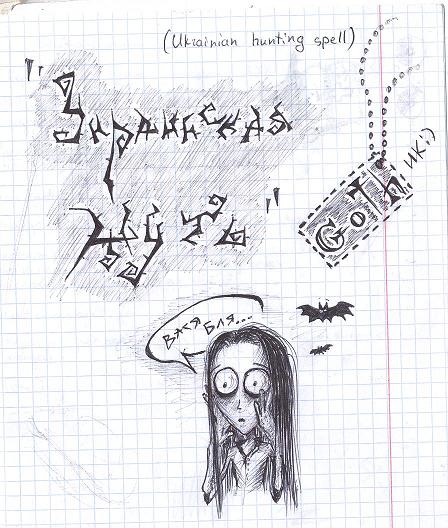 (Ukrainian hunting spell)
"Украинская
Жуть"
GoTh ИК:)
ВАСЯ
БЛЯ...